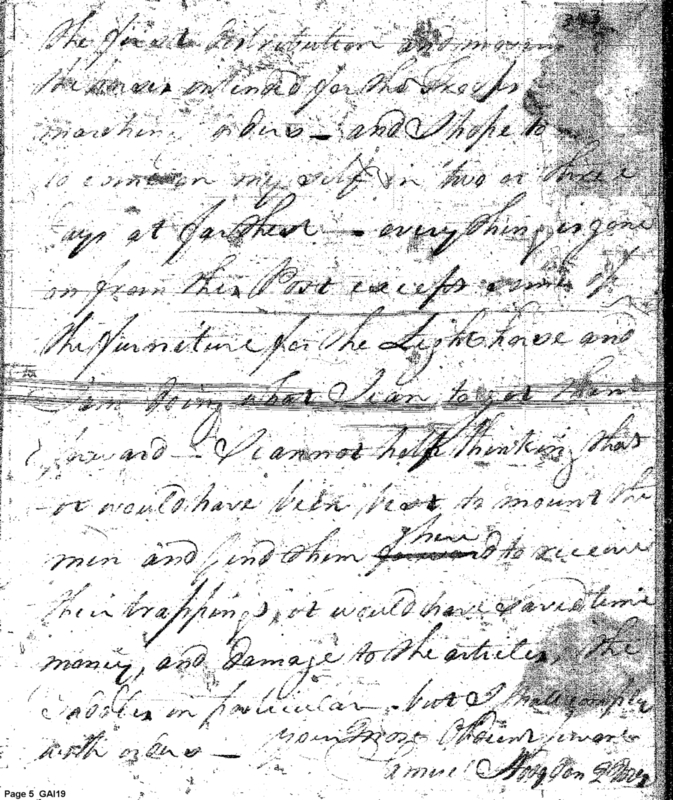 the first distribution and moving
the stores intended for the Troops
marching orders — and I hope to
to come on my self in two or three
days at farthest — every thing is gone
on from this Post except some of
the furniture for the Light horse and
I am doing what I can to get them
forward — I cannot help thinking that
it would have been best to mount the
men and send them there to receive
their trappings, it would have saved time
money, and damage to the articles, the
Saddles in particular — but I shall comply
with orders — your most Obedient servant
Samuel Hodgdon
Page 5 GAI19